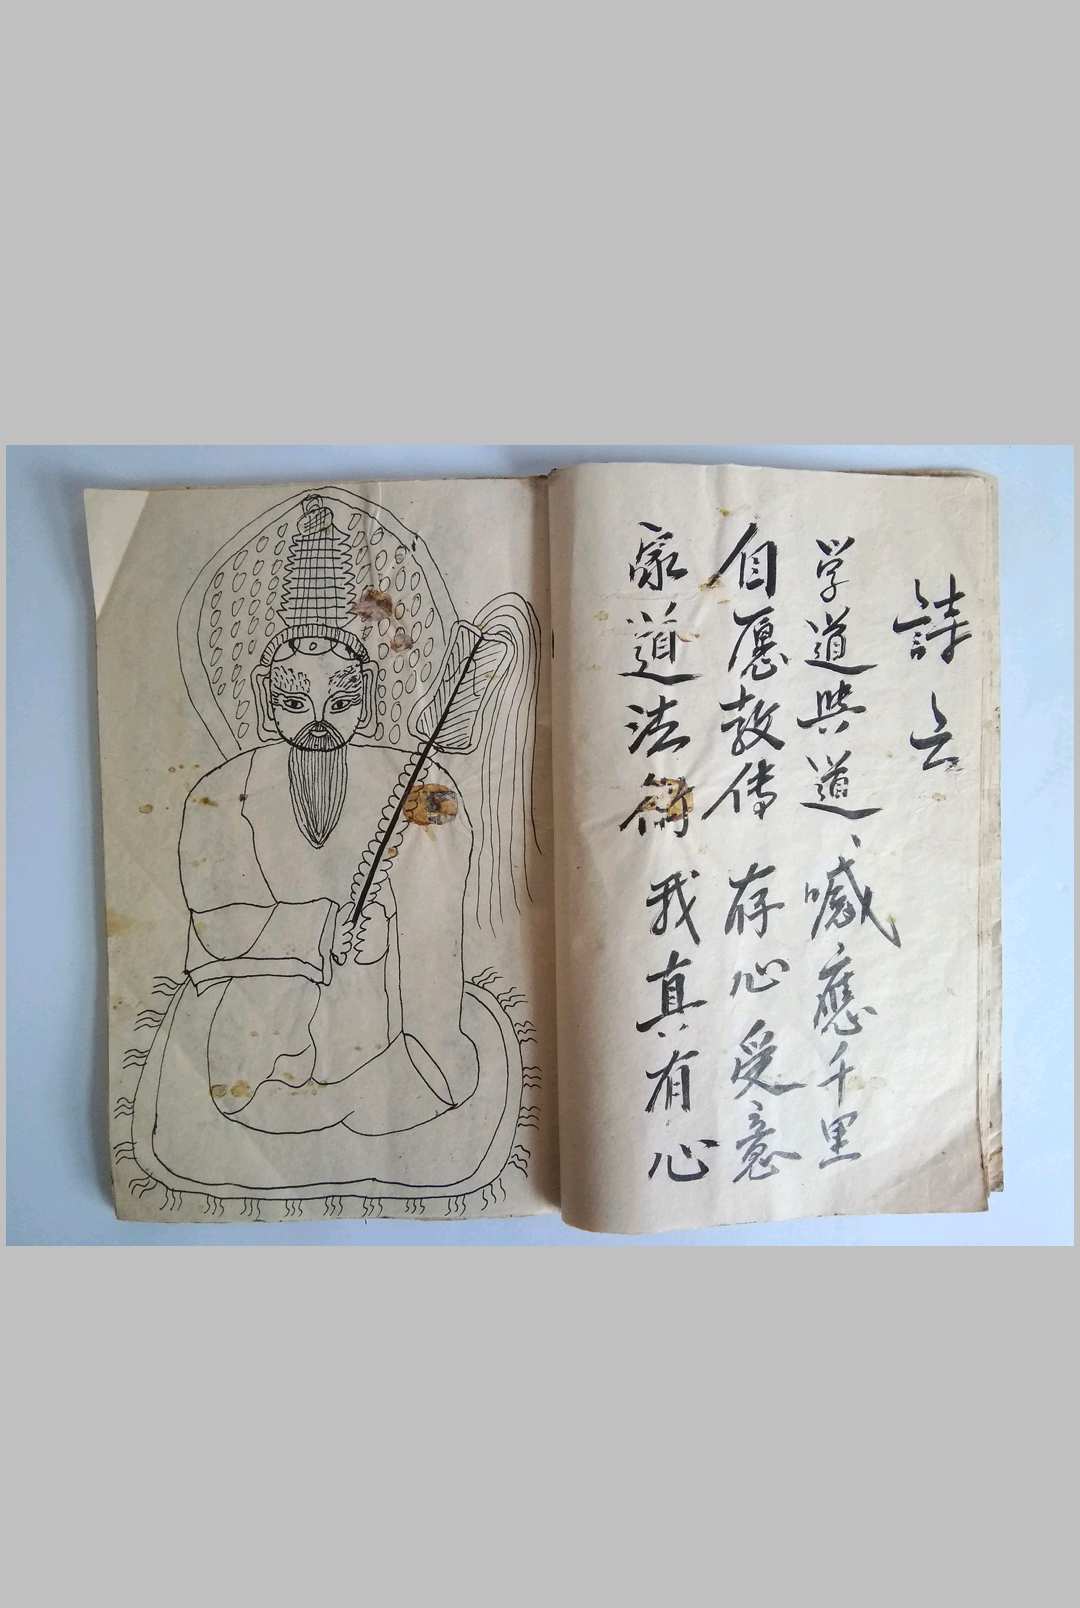 詩云
学道與道、喊應千里
自愿教传存心受意
家道法術我真有心